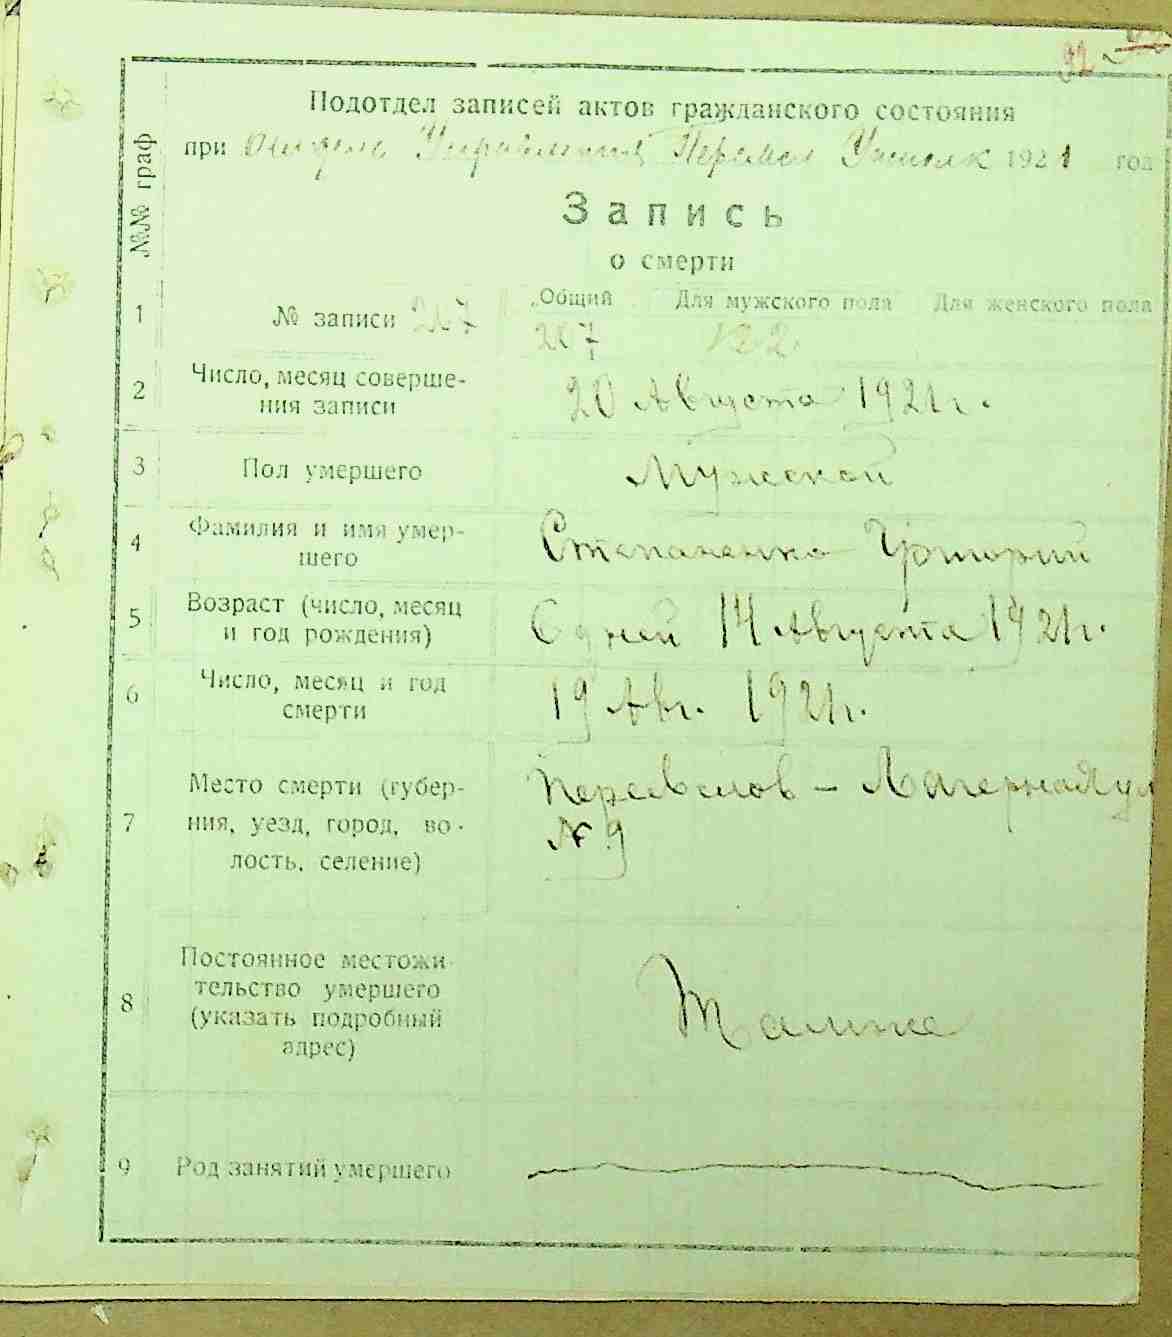 92
Подотдел записей актов гражданского состояния
при Отделе Управления 1921 год
№№ граф
Запись
о смерти
1 № записи 207 Общий Для мужского пола Для женского пола
207 122
2 Число, месяц соверше-
ния записи
20 Августа 1921 г.
3 Пол умершего Мужской
4 Фамилия и имя умер-
шего
Степаненко Григорий
5 Возраст (число, месяц
и год рождения)
6 дней 14 Августа 1921 г.
6 Число, месяц и год
смерти
19 Авг. 1921 г.
7 Место смерти (губер-
ния, уезд, город, во-
лость, селение)
Лагерная ул
№ 9
8 Постоянное местожи-
тельство умершего
(указать подробный
адрес)
Там же
9 Род занятий умершего